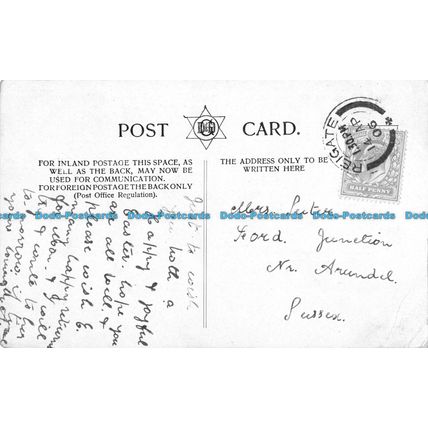 POST CARD.
FOR INLAND POSTAGE THIS SPACE, AS
WELL AS THE BACK, MAY NOW BE
USED FOR COMMUNICATION.
FOR FOREIGN POSTAGE THE BACK ONLY
(Post Office Regulation).
THE ADDRESS ONLY TO BE
WRITTEN HERE
REIGATE
HALF PENNY
Just to wish
you both a
happy & joyful
Easter. hope you
are all well. &
please wish E.
many happy returns
for Mon. & I will
try & write to
Mrs.
Ford Junction
Nr. Arundel.
Sussex.
Dodo-Postcards Dodo-Postcards Dodo-Postcards Dodo-Postcards
Dodo-Postcards Dodo-Postcards Dodo-Postcards Dodo-Postcards